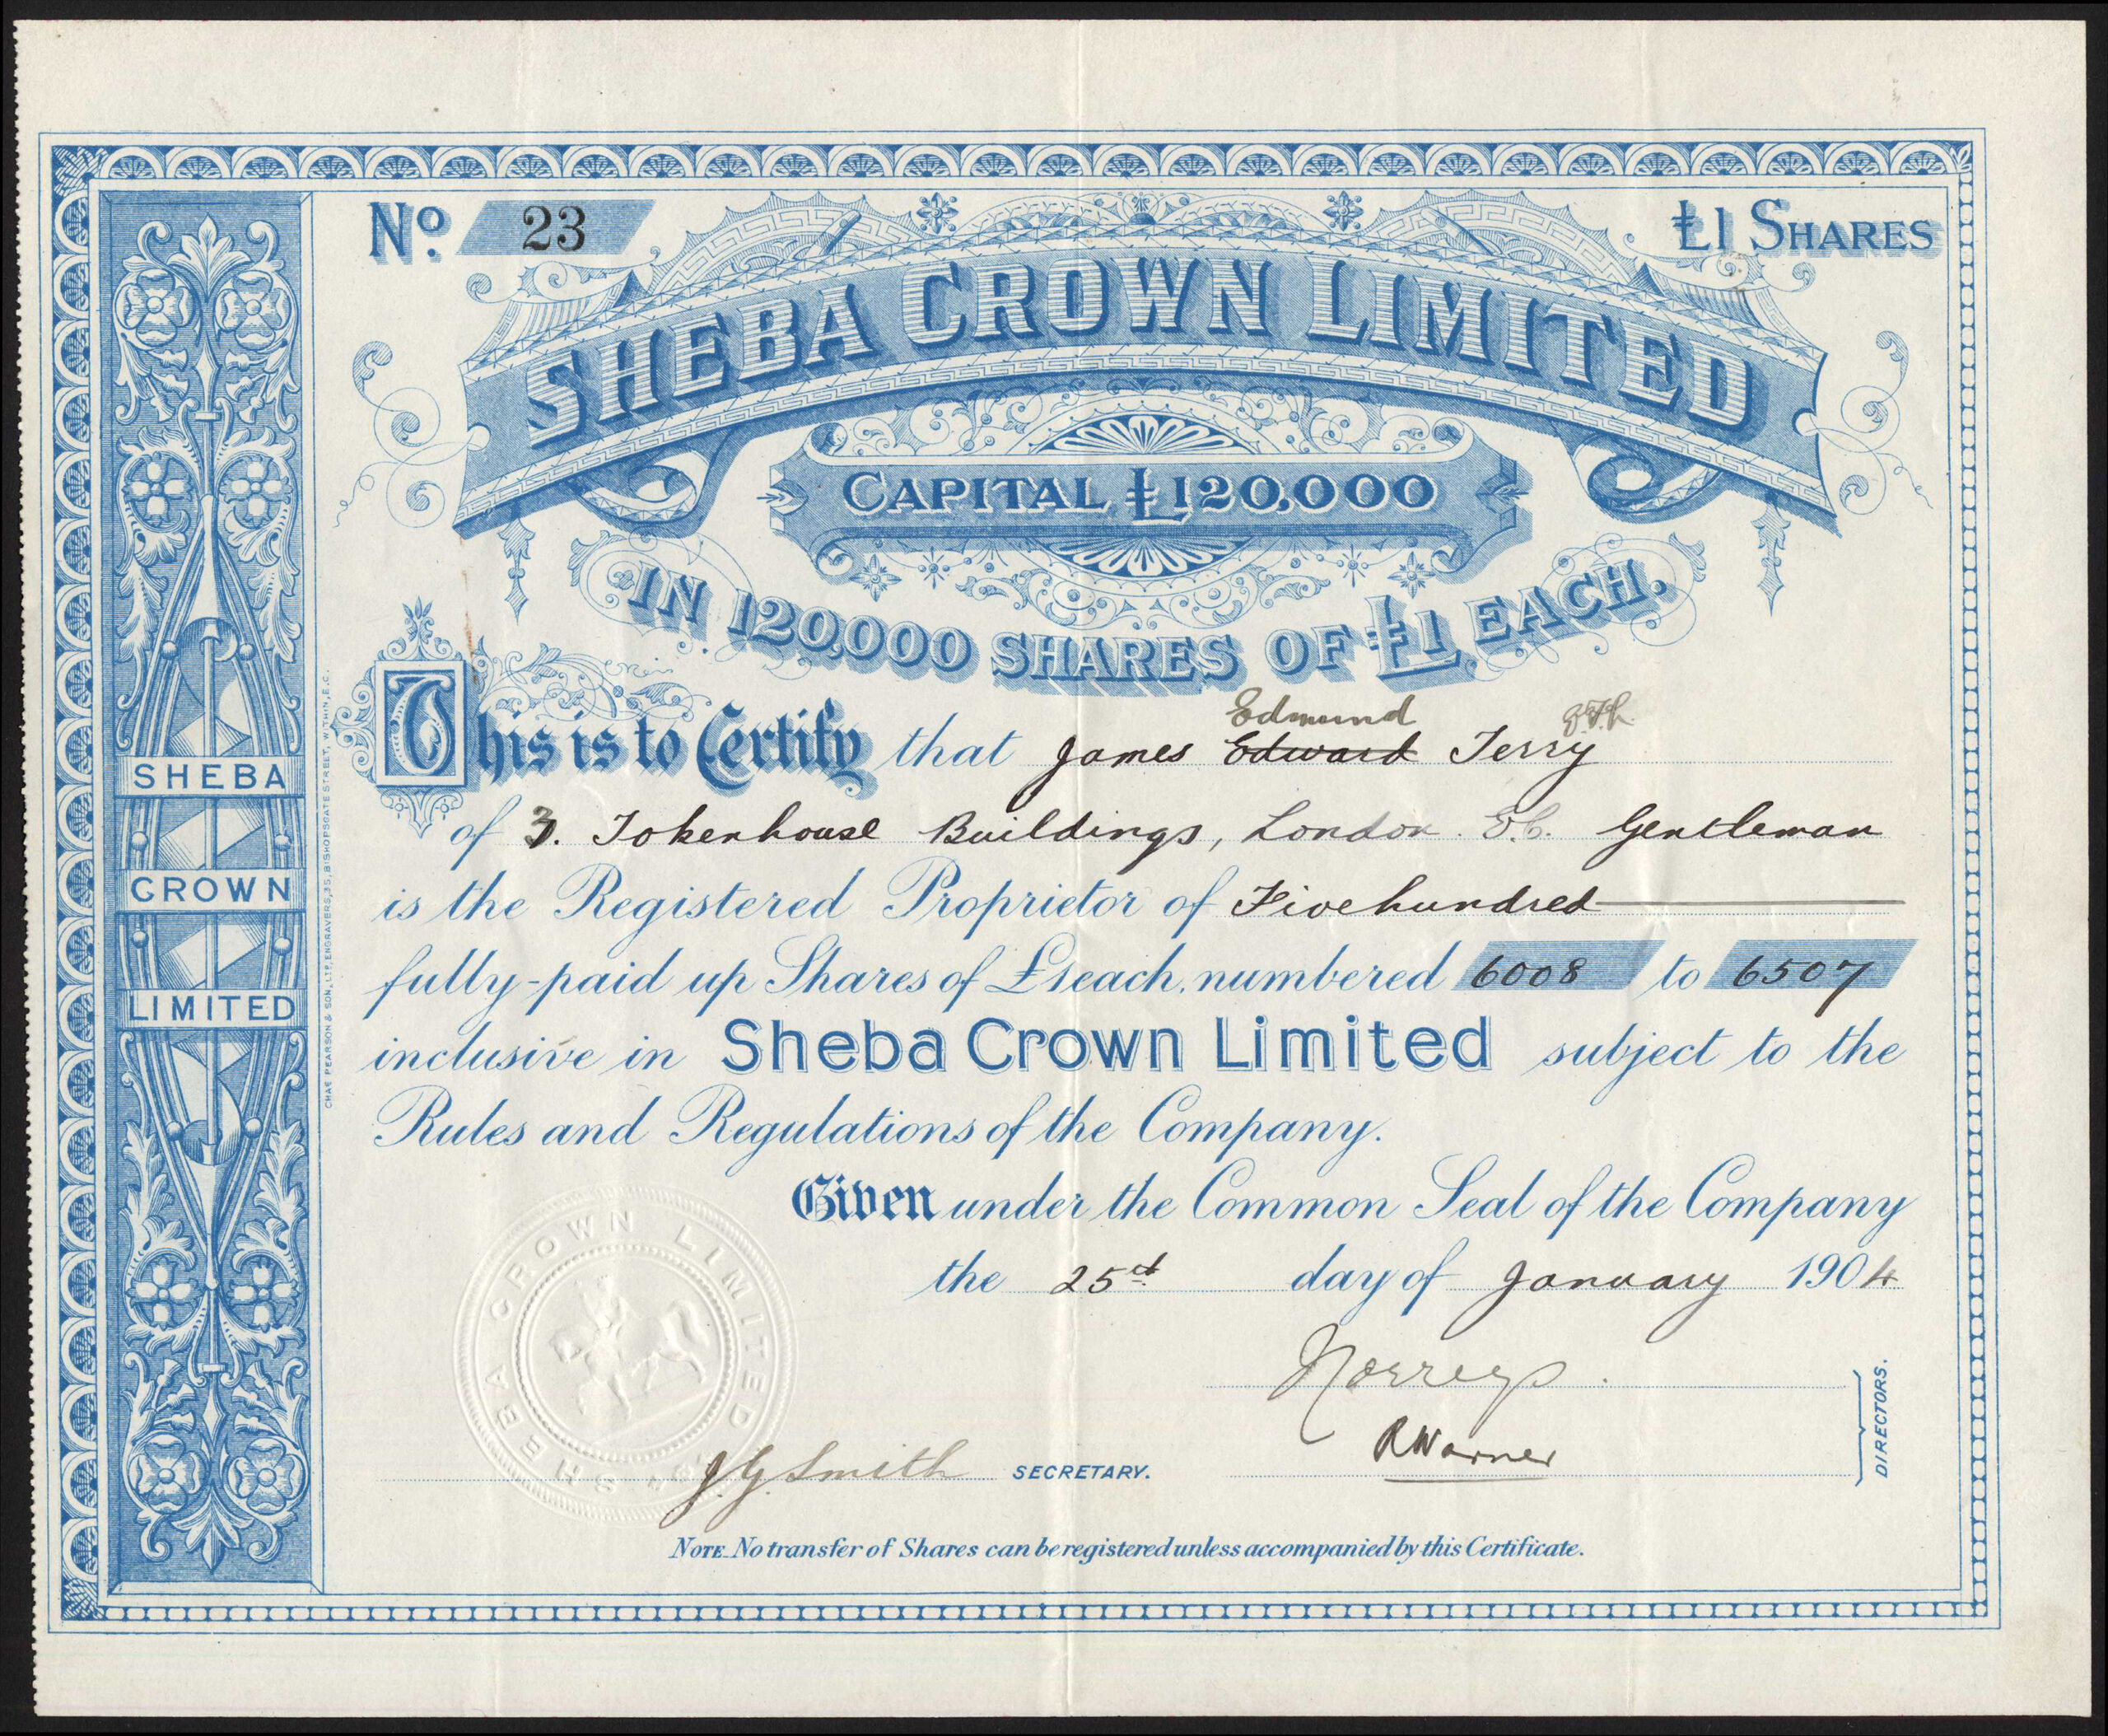 No. 23
£1 SHARES
SHEBA CROWN LIMITED
CAPITAL £120,000
IN 120,000 SHARES OF £1 EACH.
Edmund
This is to Certify that James Edward Terry
of 3. Tokenhouse Buildings, London. E.C. Gentleman
is the Registered Proprietor of Five hundred
fully-paid up Shares of £1 each, numbered 6008 to 6507
inclusive in Sheba Crown Limited subject to the
Rules and Regulations of the Company.
Given under the Common Seal of the Company
the 25th day of January 1904
Norreys.
R Warner
DIRECTORS.
J. G. Smith SECRETARY.
NOTE. No transfer of Shares can be registered unless accompanied by this Certificate.
SHEBA
CROWN
LIMITED
CHAS PEARSON & SON, LTD, ENGRAVERS, 35, BISHOPSGATE STREET, WTHIN, E.C.
SHEBA CROWN LIMITED